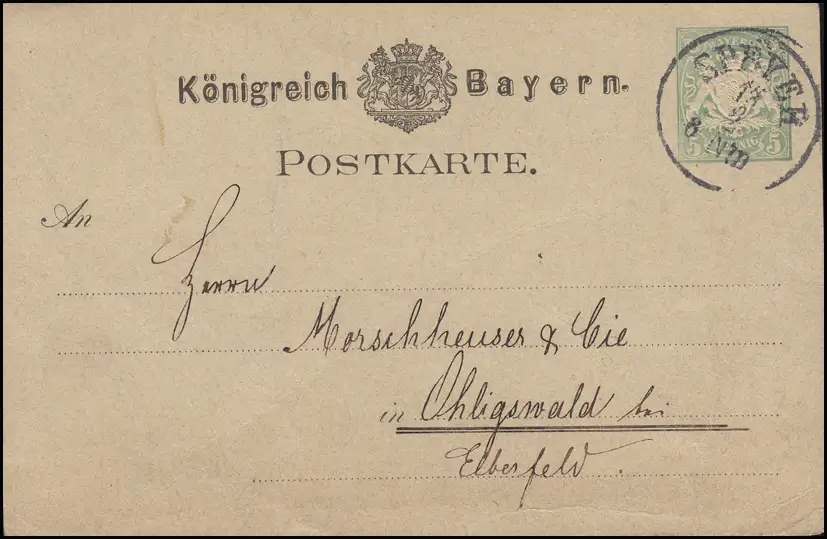 Königreich Bayern.
POSTKARTE.
SPEYER
8
5 5
An
Herrn
Morschheuser & Cie
in Ohligswald bei
Elberfeld.